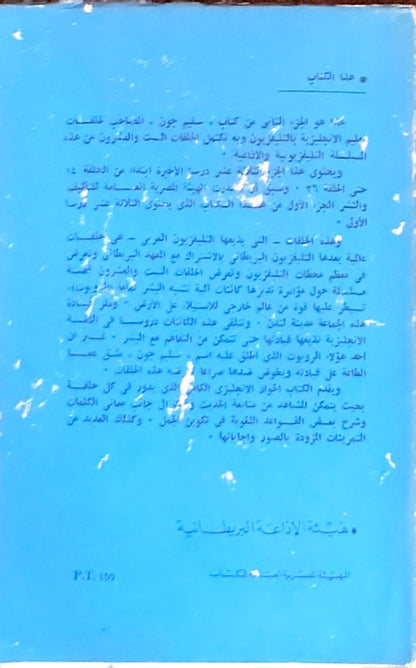 * هذا الكتاب
هذا هو الجزء الثاني من كتاب « سليم جون » المصاحب لحلقات
تعليم الانجليزية بالتليفزيون وبه تكتمل الحلقات الست والعشرون من هذه
السلسلة التليفزيونية والاذاعية •
ويحتوى هذا الجزء عشر درسا الأخيرة ابتداء من الحلقة ١٤
حتى الحلقة ٢٦ • الهيئة المصرية العامة للتأليف
والنشر الجزء الأول من هذا الكتاب الذى يحتوى الثلاثة عشر درسا
الأولى •
وهذه الحلقات – التى يذيعها التليفزيون العربى – هى حلقات
عالية يعدها التليفزيون البريطانى بالاشتراك مع المعهد البريطانى وتعرض
فى معظم محطات التليفزيون وتعرض الحلقات الست والعشرون قصة
مسلسلة حول مؤامرة تدبرها كائنات آلية تشبه البشر
تسيطر عليها قوة من عالم خارجى للاستيلاء على الأرض • ومقر قيادة
هذه الجماعة مدينة لندن • وتتلقى هذه الكائنات دروسا فى اللغة
الانجليزية تذيعها قيادتها حتى تتمكن من التفاهم مع البشر • غير أن
أحد هؤلاء الروبوت الذى أطلق عليه اسم « سليم جون » يشق عصا
الطاعة على قيادته ويخوض ضدها صراعا هذه الحلقات •
ويقدم الكتاب الحوار الانجليزى الكامل الذى يدور فى كل حلقة
بحيث يتمكن المشاهد من متابعة الحديث الى جانب معانى الكلمات
وشرح بعض القواعد اللغوية فى تكوين الجمل • وكذلك العديد من
التمرينات المزودة بالصور واجاباتها •
* هيئة الإذاعة البريطانية
الهيئة المصرية العامة للكتاب
P.T. 150